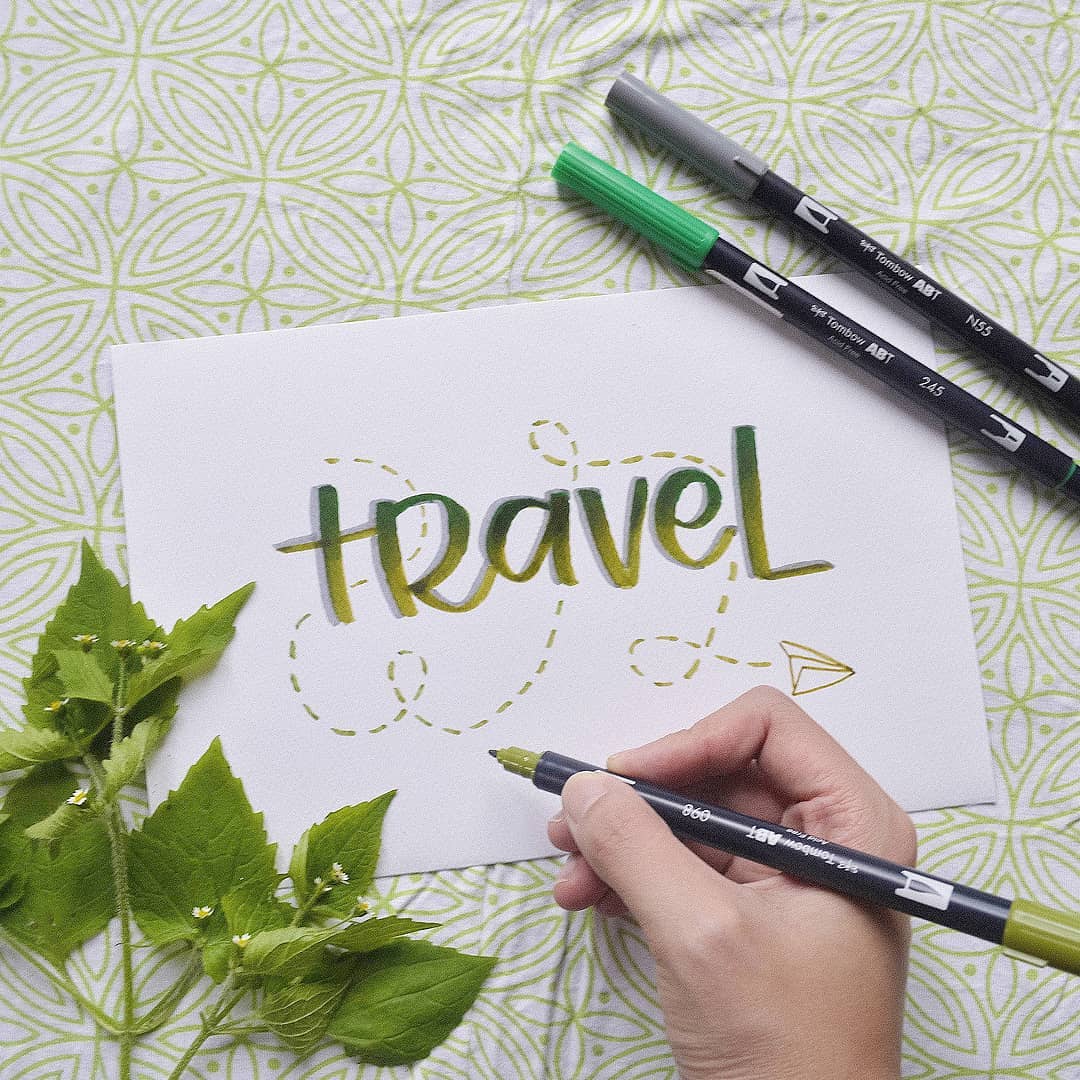 Tombow ABT
Acid Free
N55
Tombow ABT
Acid Free
245
tRaveL
098
Tombow ABT
Acid Free